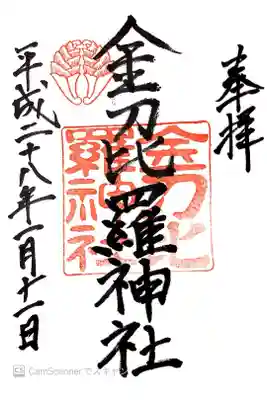 奉拝
金刀比羅神社
金刀比
羅神社
平成二十八年一月十一日
CS CamScannerでスキャン